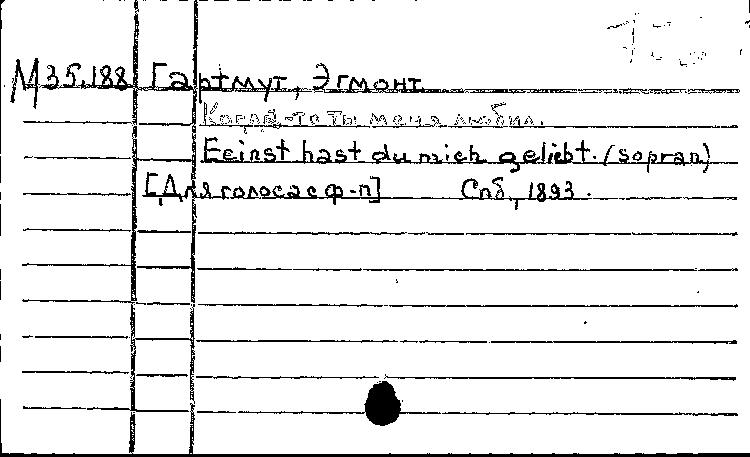 М35.188 Гартмут, Эгмонт
Когда-то ты меня любил.
Eeinst hast du mich geliebt. (sopran)
[Для голоса с ф-п] Спб., 1893.